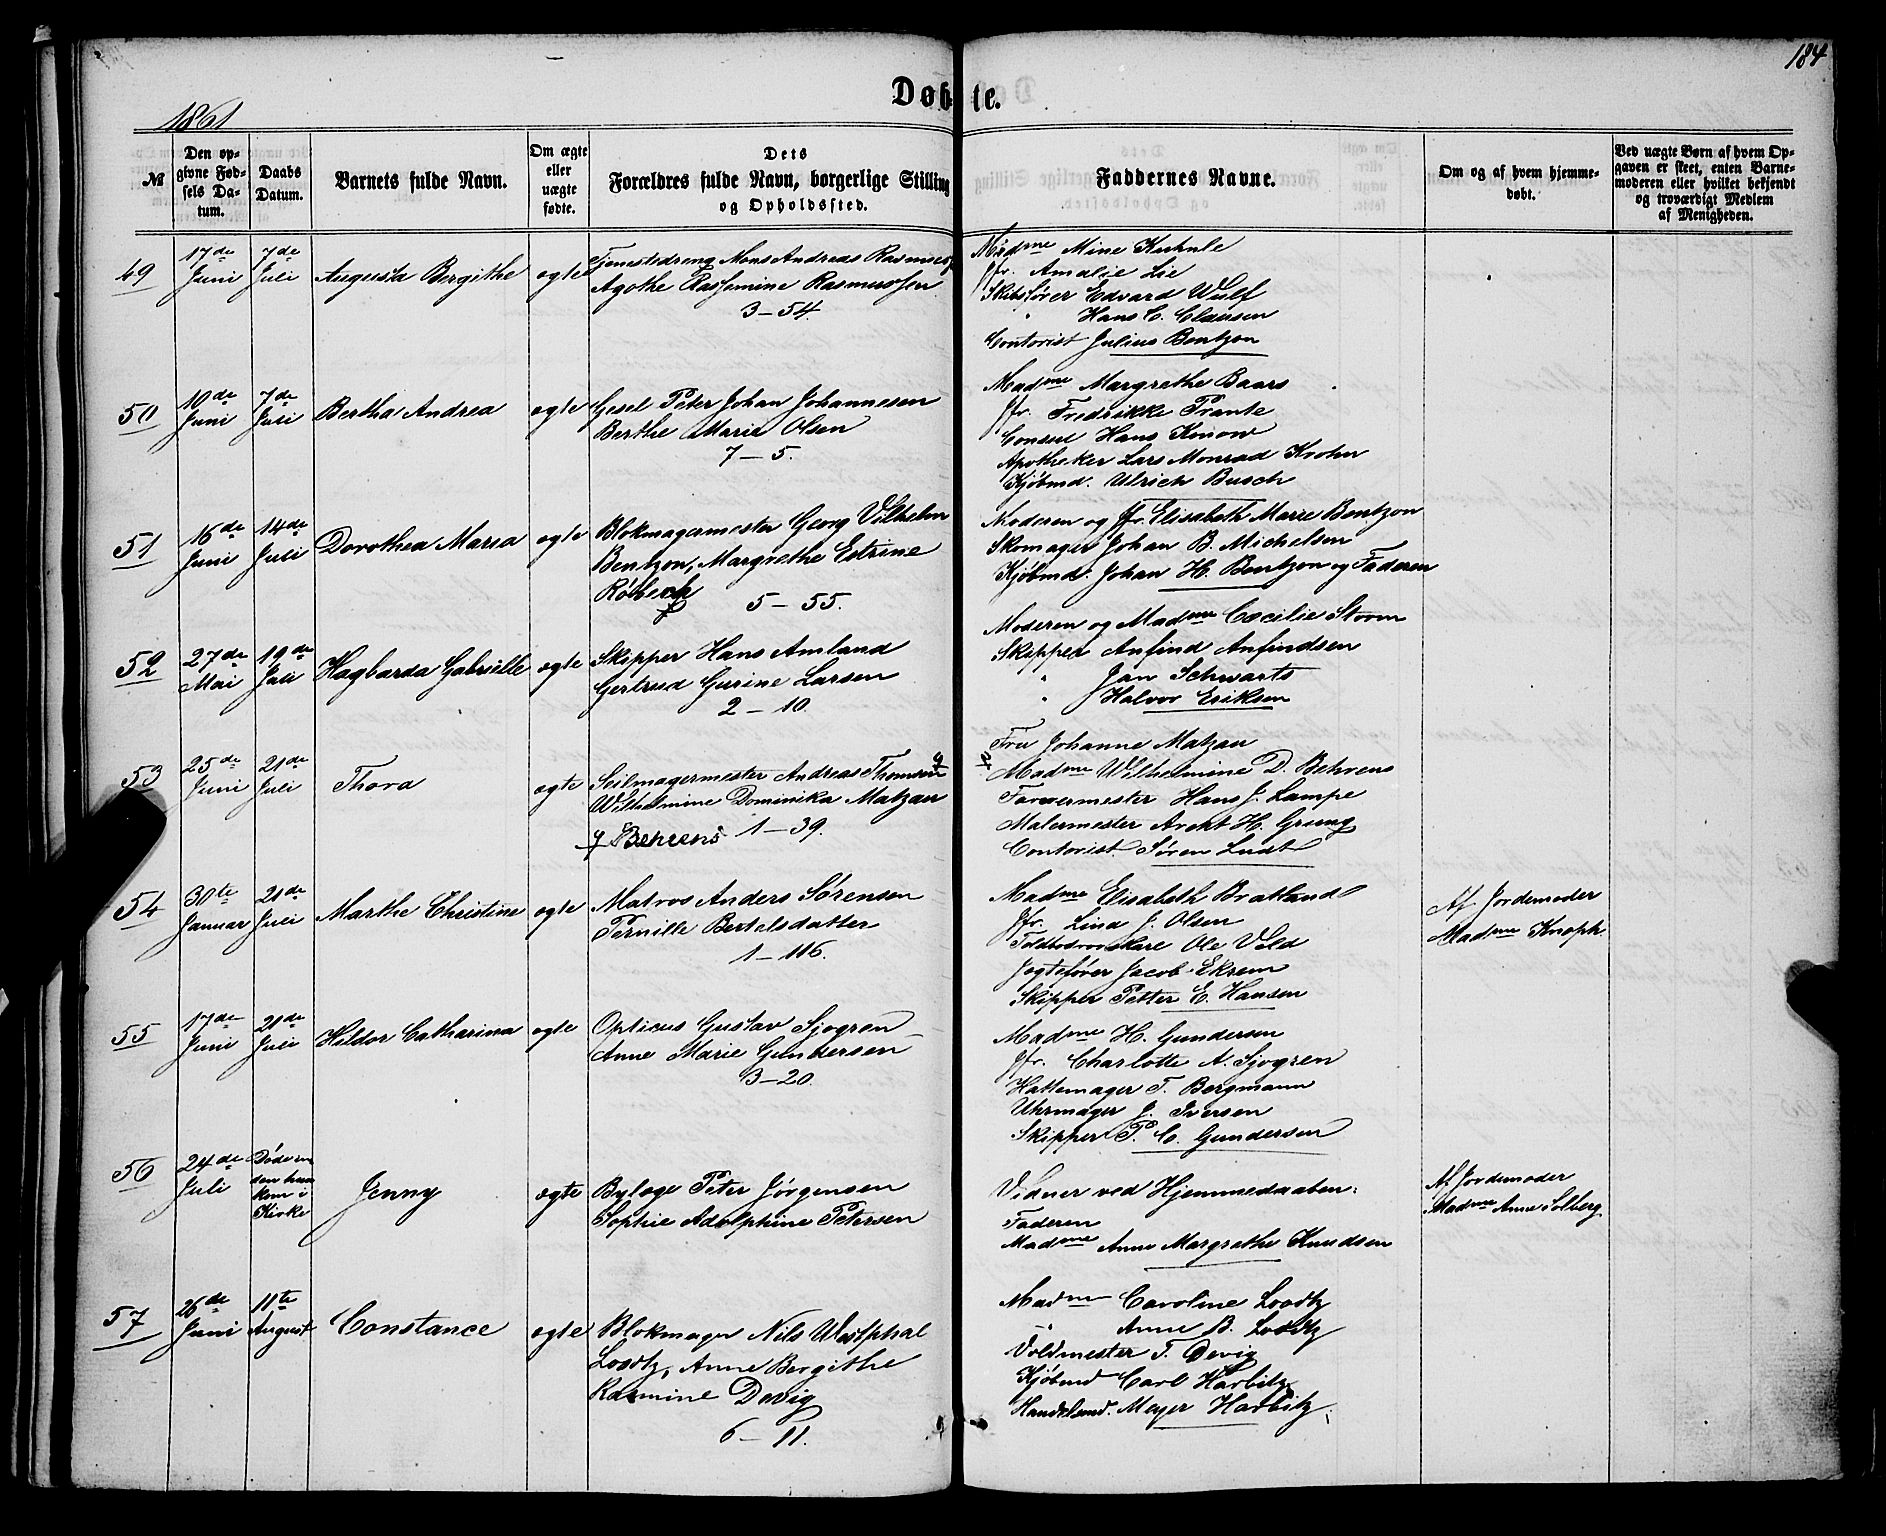 184
Døbte.
1861
№
Den op-
givne Fød-
sels Da-
tum.
Daabs
Datum.
Barnets fulde Navn.
Om ægte
eller
uægte
fødte.
Dets
Forældres fulde Navn, borgerlige Stilling
og Opholdssted.
Faddernes Navne.
Om og af hvem hjemme-
døbt.
Ved uægte Børn af hvem Op-
gaven er skeet, enten Barne-
moderen eller hvilket bekjendt
og troværdigt Medlem
af Menigheden.
49
17de
Juni
7de
Juli
Augusta Bergithe
ægte
Tjenestedreng Mons Andreas Rasmusen
Agathe Rasmine Rasmussen
3-54.
Madme Mine Kuhnle
Jfr. Amalie Lie
Skibsfører Edvard Wulf
" Hans C. Clausen
Contorist Julius Bentzon
50
10de
Juni
7de
Juli
Bertha Andrea
ægte
Gesel Peter Johan Johannesen
Berthe Marie Olsen
7-5.
Madme Margrethe Baars
Jfr. Fredrikke Prante
Consul Hans Kmow
Apotheker Lars Monrad Krohn
Kjøbmd. Ulrich Busch
51
16de
Juni
14de
Juli
Dorothea Maria
ægte
Blokmagermester Georg Vilhelm
Bentzon, Margrethe Estrine
Røberch
5-55.
Moderen og Jfr. Elisabeth Marie Bentzon
Skomager Johan B. Michelsen
Kjøbmd. Johan H. Bentzon og Faderen
52
27de
Mai
19de
Juli
Hagbarda Gabrielle
ægte
Skipper Hans Amland
Gertrud Gurine Larsen
2-10.
Moderen og Madme Cæcilie Storm
Skipper Anfind Anfindsen
" Jan Schwarts
" Halvor Eriksen
53
25de
Juni
21de
Juli
Thora
ægte
Seilmagermester Andreas Thomsen
Wilhelmine Dominika Matzau
Behrens 1-39.
Fru Johanne Matzau
Madme Wilhelmine D. Behrens
Farvermester Hans J. Lampe
Malermester Arent H. Grung
Contorist. Søren Ludt
54
30te
Januar
21de
Juli
Marthe Christine
ægte
Matros Anders Sørensen
Pernille Bertelsdatter
1-116.
Madme Elisabeth Bratland
Jfr. Lina J. Olsen
Toldbodroerskarl Ole Veld
Jægtefører Jacob Ekrem
Skipper Petter E. Hansen
Af Jordemoder
Madme Knoph.
55
17de
Juni
21de
Juli
Hildor Catharina
ægte
Opticus Gustav Sjogren
Anne Marie Gundersen
3-20.
Madme H. Gundersen
Jfr. Charlotte A. Sjogren
Hattemager T. Bergmann
Uhrmager J. Iversen
Skipper P. C. Gundersen
56
24de
Juli
Døde in
den han
kom i
Kirke
Jenny
ægte
Bylæge Peter Jørgensen
Sophie Adolphine Petersen
Vidner ved Hjemmedaaben:
Faderen
Madme Anne Margrethe Knudsen
Af Jordemoder
Madme Anne Solberg
57
26de
Juni
11te
August
Constance
ægte
Blokmager Nils Westphal
Loadtz, Anne Bergithe
Rasmine Devig
6-11.
Madme Caroline Loadtz
" Anne B. Loadtz
Voldmester T. Devig
Kjøbmd Carl Harbitz
Handelsmd. Meyer Harbitz